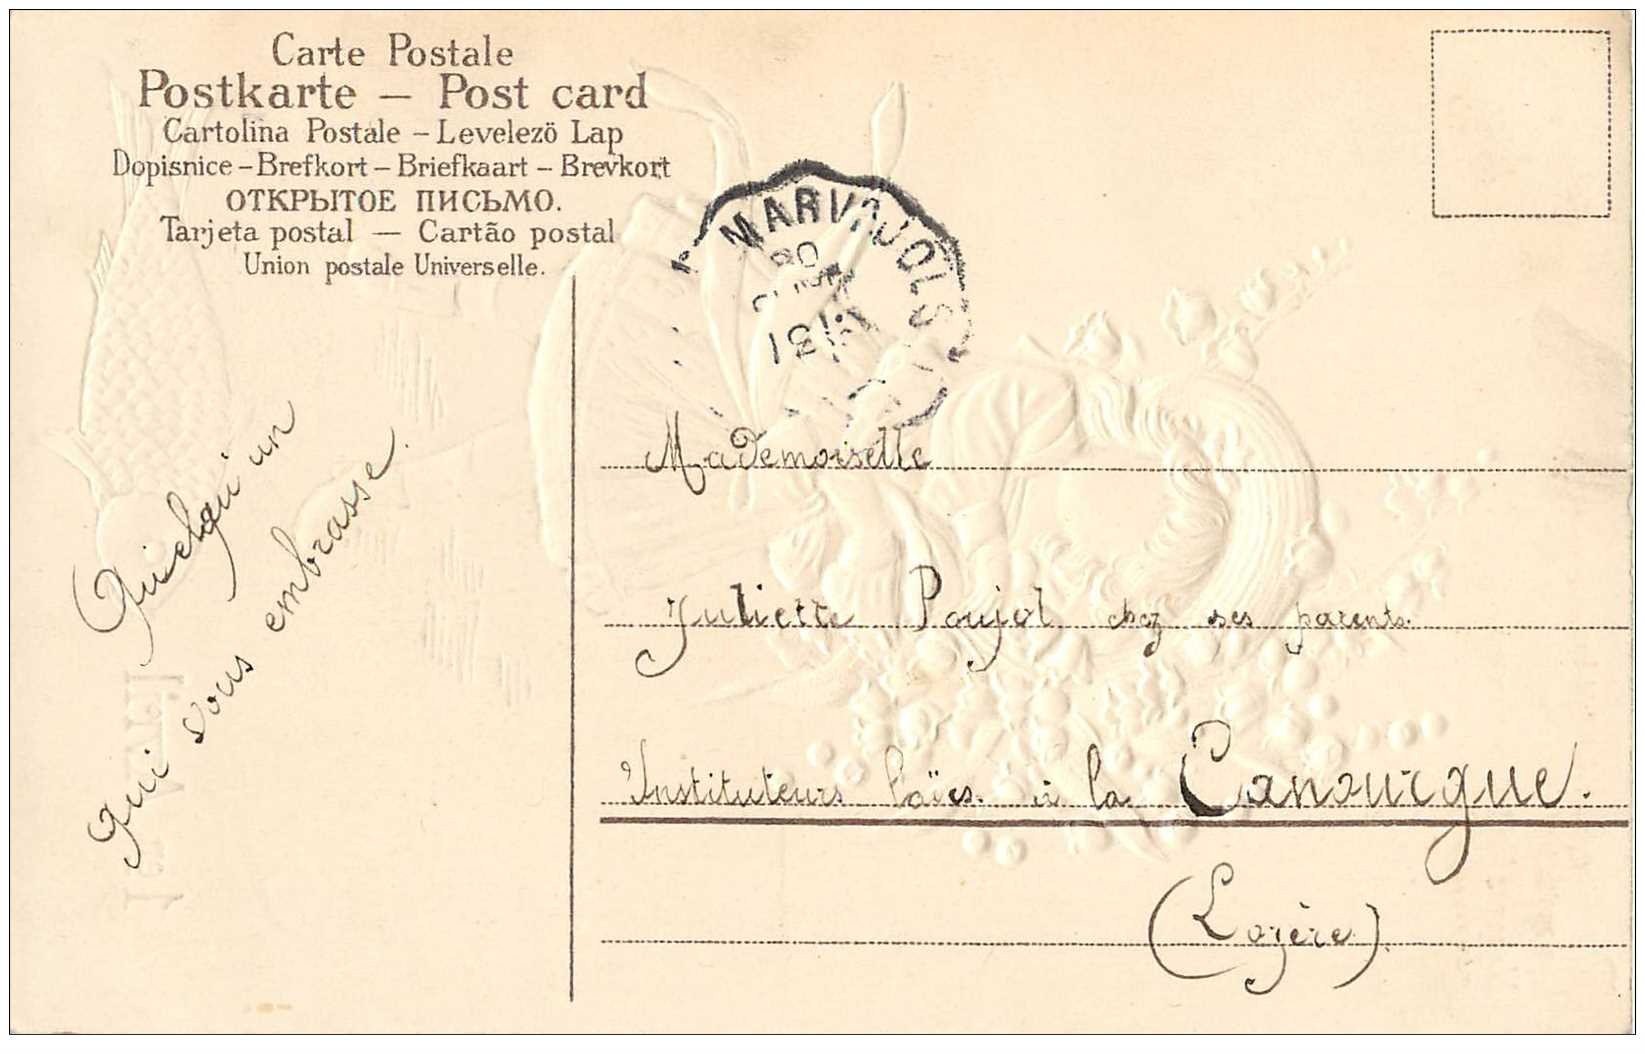 Carte Postale
Postkarte — Post card
Cartolina Postale – Levelezö Lap
Dopisnice – Brefkort – Briefkaart – Brevkort
ОТКРЫТОЕ ПИСЬМО.
Tarjeta postal — Cartão postal
Union postale Universelle.
MARVEJOLS
31
08
Quelqu'un
qui vous embrasse.
Mademoiselle
Juliette Poujol chez ses parents
Instituteurs laïcs. à la Canourgue.
(Lozère).
1er AVRIL